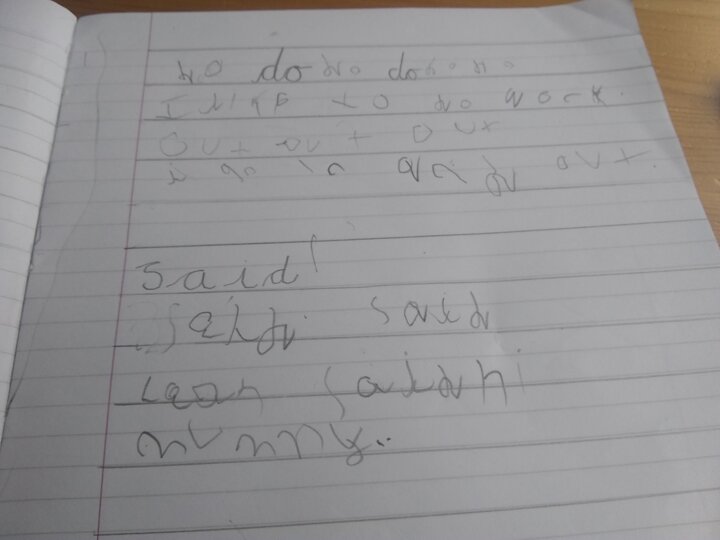 do do do do do do
I like to do work.
out out out
i go in and out.
said
said said
Leah said hi
mummy.